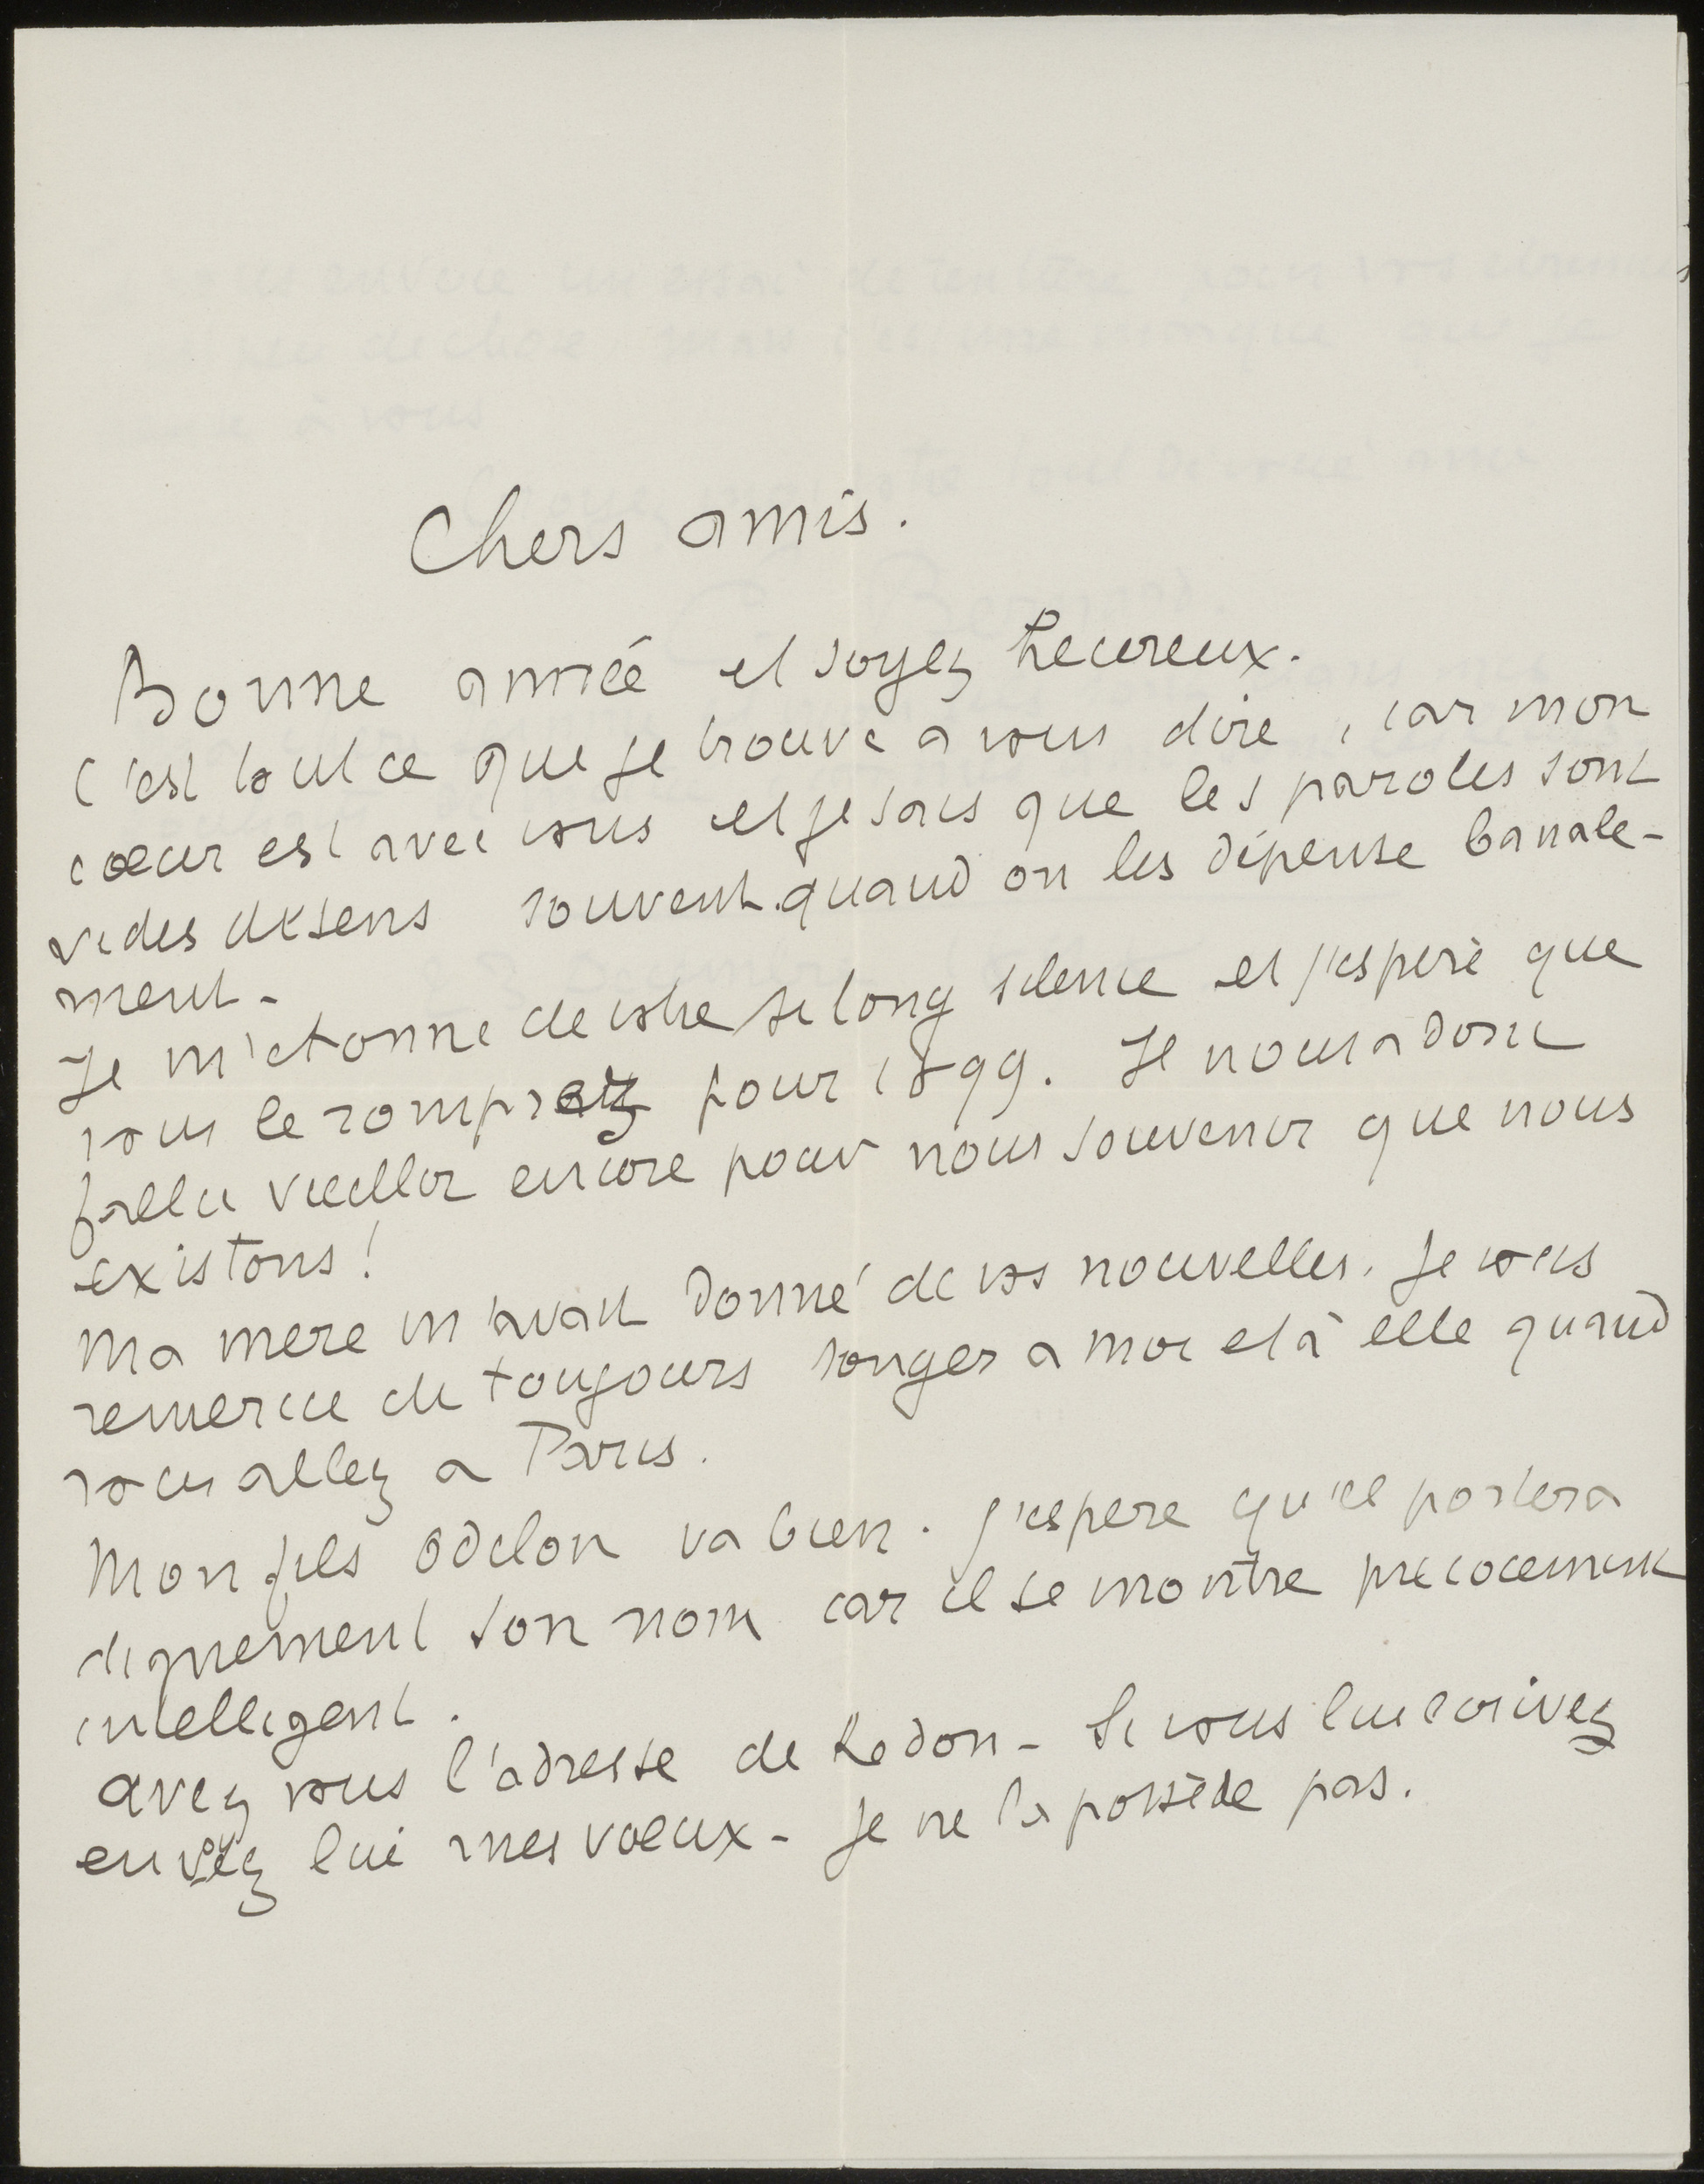 Chers amis.
Bonne année et soyez heureux.
C'est tout ce que je trouve a vous dire, car mon
coeur est avec vous et je sais que les paroles sont
vides de sens souvent quand on les dépense banale-
ment-
Je m'etonne de votre si long silence et j'espere que
vous le romprez pour 1899. Il nous a donc
fallu vieillir encore pour nous souvenir que nous
existons!
Ma mere m'avait donné de vos nouvelles. Je vous
remercie de toujours songer a moi et à elle quand
vous allez a Paris.
Mon fils Odilon va bien. J'espere qu'il portera
dignement son nom car il se montre precocement
intelligent.
avez vous l'adresse de Redon - Si vous lui ecrivez
envoyez lui mes voeux - Je ne la possède pas.